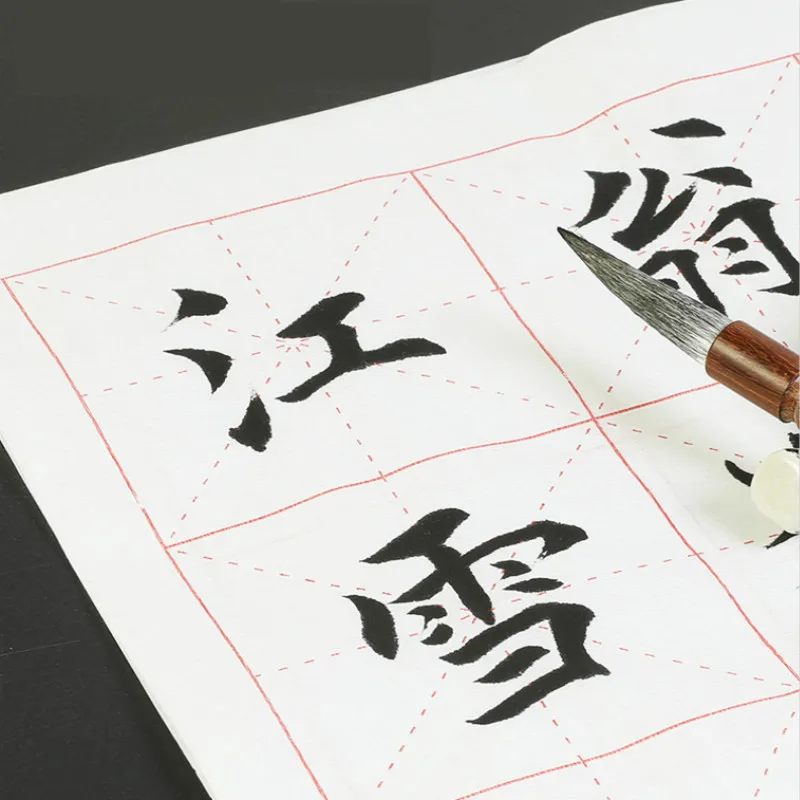 翁
江雪